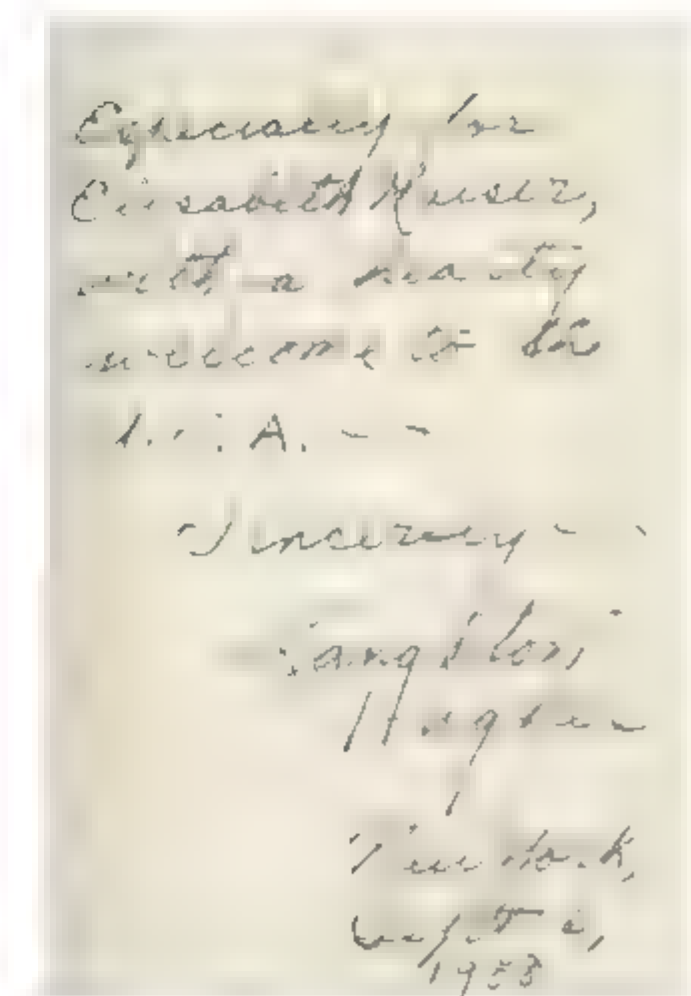 Especially for
Elisabeth Kaiser,
with a hearty
welcome to the
A. - -
Sincerely - -
Langston
Hughes
New York,
1953